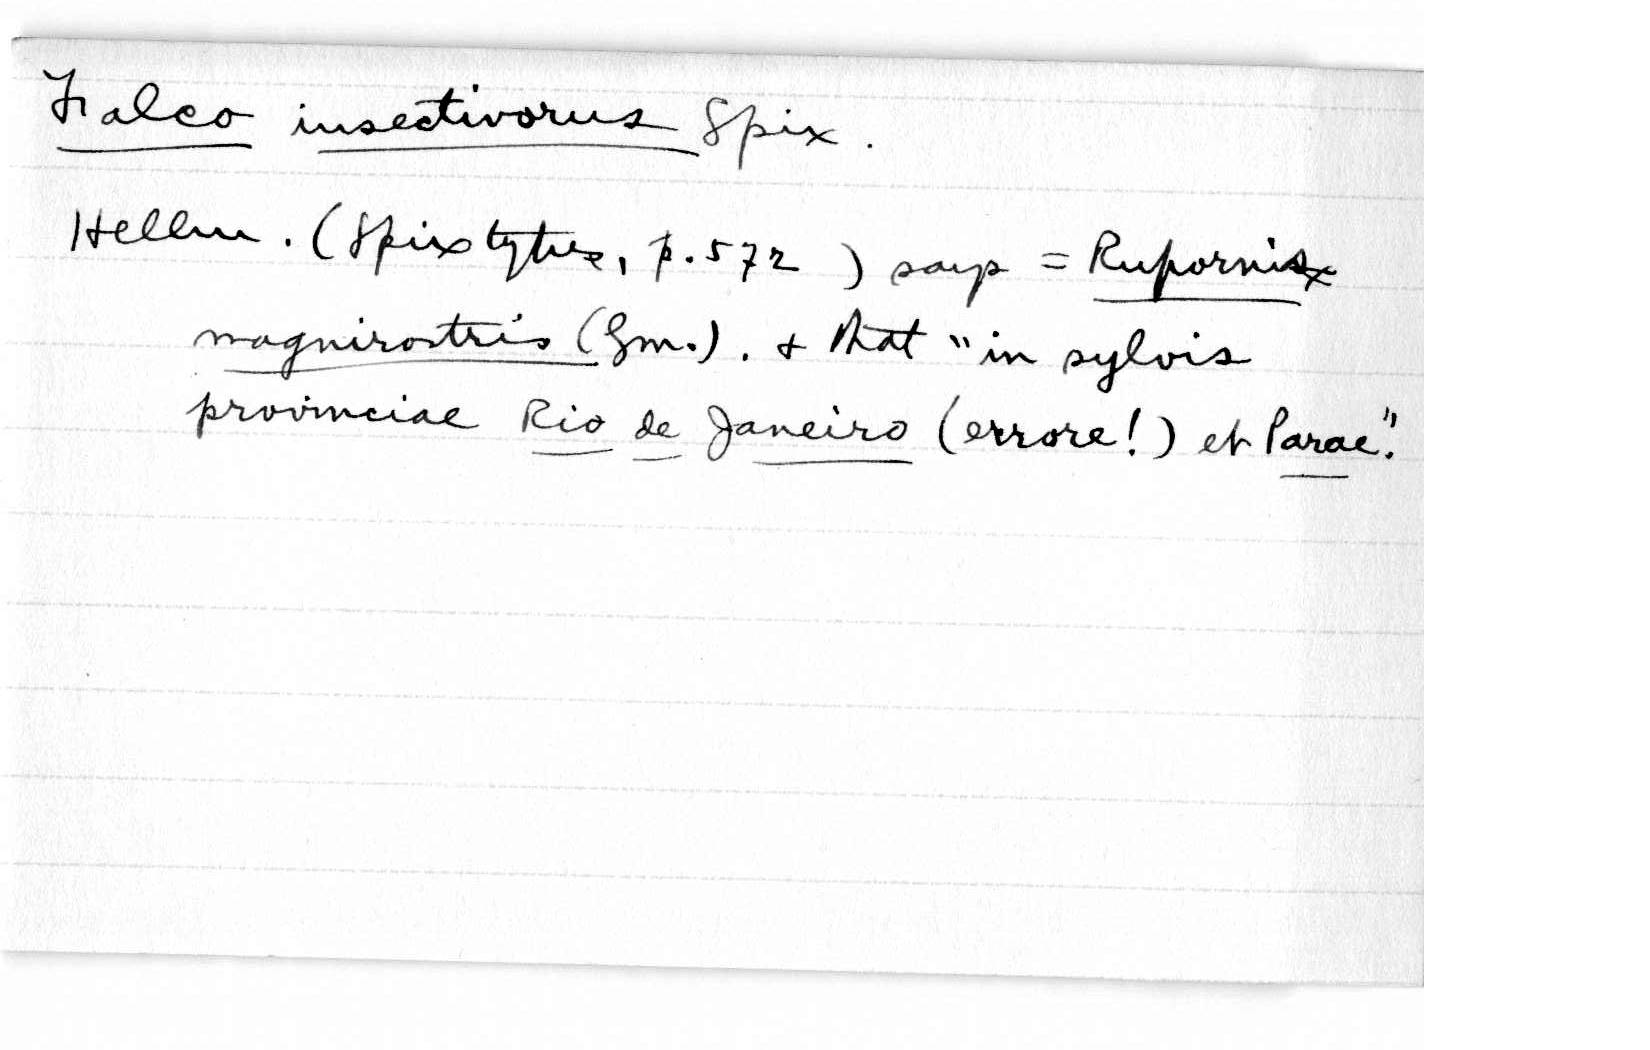 Falco insectivorus Spix.
Hellm. (Spix types, p. 572) says = Rupornis
magnirostris (Gm.). & that "in sylvis
provinciae Rio de Janeiro (errore!) et Parae".